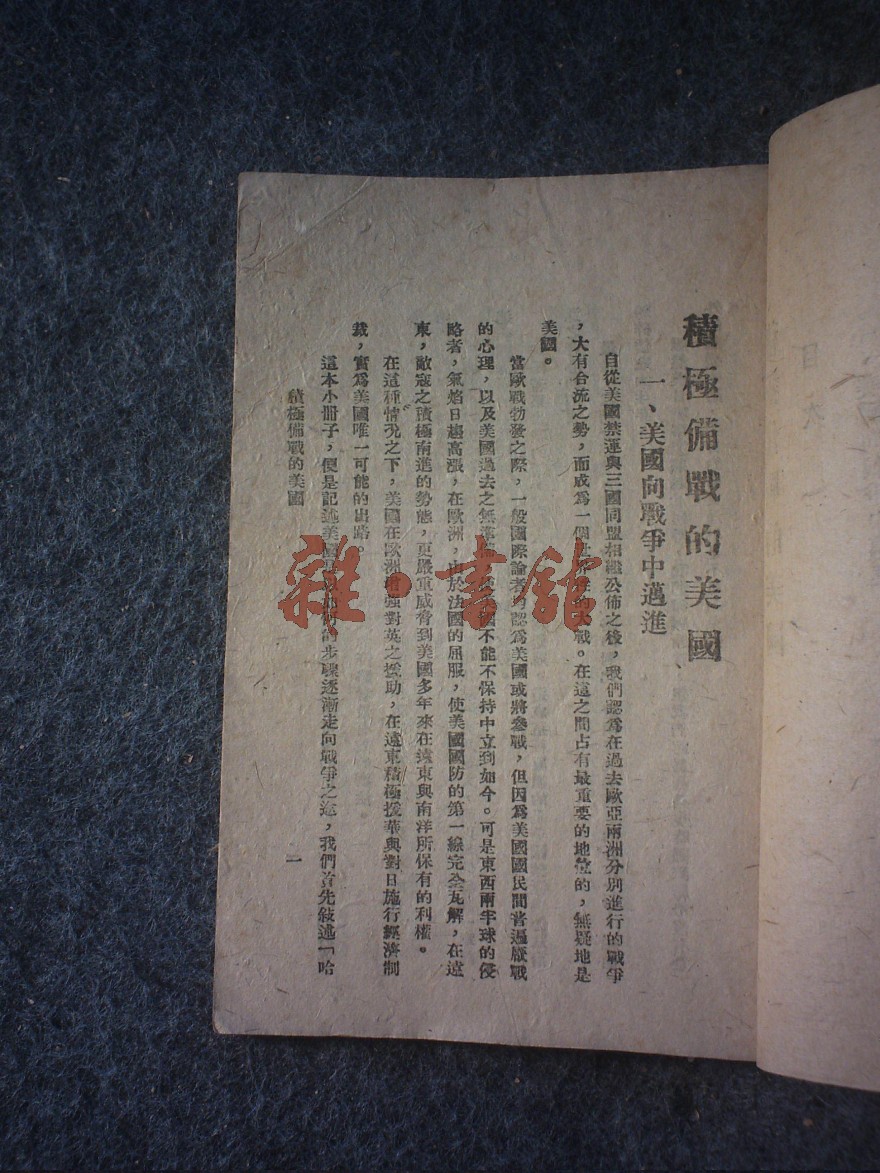 積極備戰的美國
一、美國向戰爭中邁進
自從美國禁運與三國同盟相繼公佈之後，我們認爲在過去歐亞兩洲分別進行的戰爭
，大有合流之勢，而成爲一個 的大戰。在這之間占有最重要的地位的，無疑地是
美國。
當歐戰勃發之際，一般國際論者均認爲美國或將參戰，但因爲美國國民間普遍厭戰
的心理，以及美國過去之無準 不能不保持中立到如今。可是東西兩半球的侵
略者，氣焰日趨高漲，在歐洲，由於法國的屈服，使美國國防的第一線完全瓦解，在遠
東，敵寇之積極南進的勢態，更嚴重威脅到美國多年來在遠東與南洋所保有的利權。
在這種情況之下，美國在歐洲增強對英之援助，在遠東積極援華與對日施行經濟制
裁，實爲美國唯一可能的出路。
這本小册子，便是記述美國 的步驟逐漸走向戰爭之途，我們首先敍述「哈
積極備戰的美國
一
雜·書館